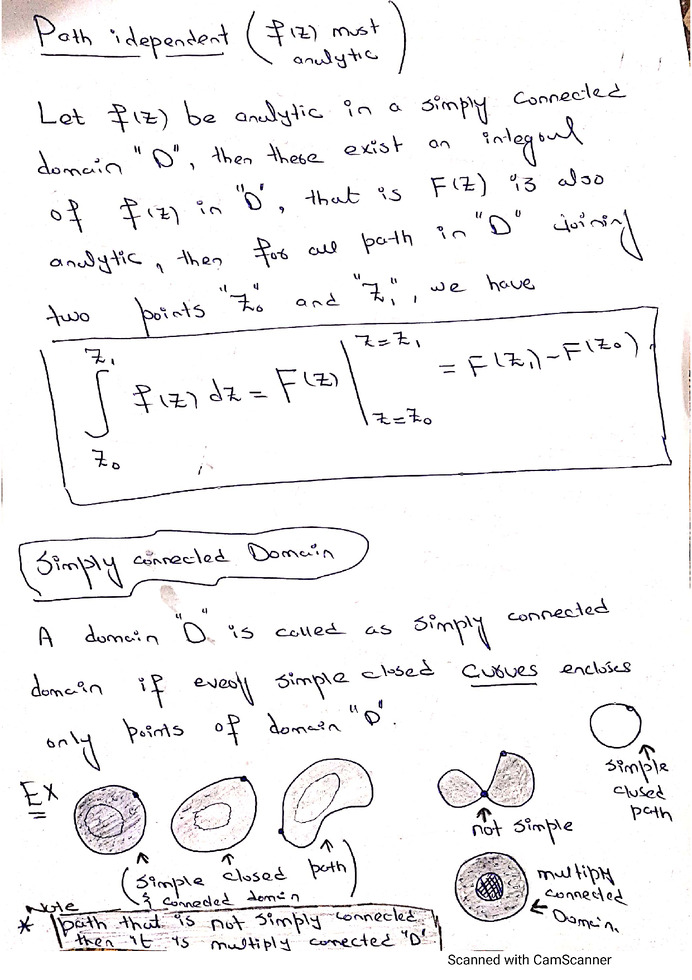 Path idependent ( f(z) must
analytic )
Let f(z) be analytic in a simply connected
domain "D", then these exist an integoul
of f(z) in "D", that is F(z) is also
analytic, then for all path in "D" joining
two points "Z₀" and "Z₁", we have
∫_{Z₀}^{Z₁} f(z) dz = F(z) |_{z=z₀}^{z=z₁} = F(z₁) - F(z₀)
Simply connected Domain
A domain "D" is called as simply connected
domain if every simple closed curves encloses
only points of domain "D".
Ex
simple
closed
path
not simple
(simple closed path)
& conneded domin
multiply
connected
Domain.
Note
* path that is not simply connected,
then it is multiply conected "D"
Scanned with CamScanner